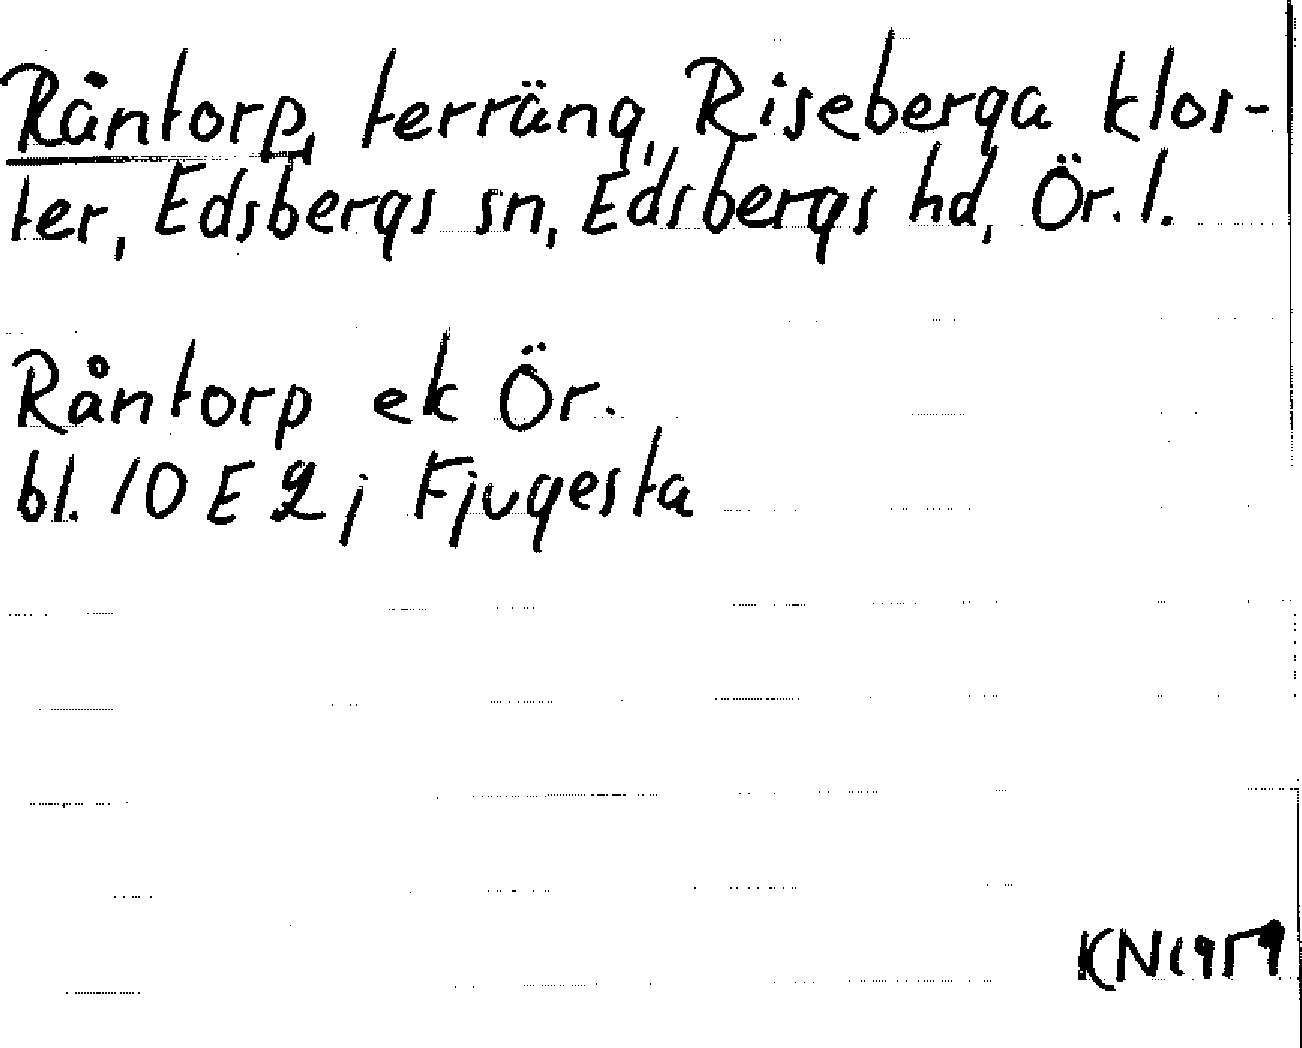 Råntorp, terräng, Riseberga klos-
ter, Edsbergs sn, Edsbergs hd, Ör. l.
Råntorp ek Ör.
bl. 10 E 2 j Fjugesta
KN 1959